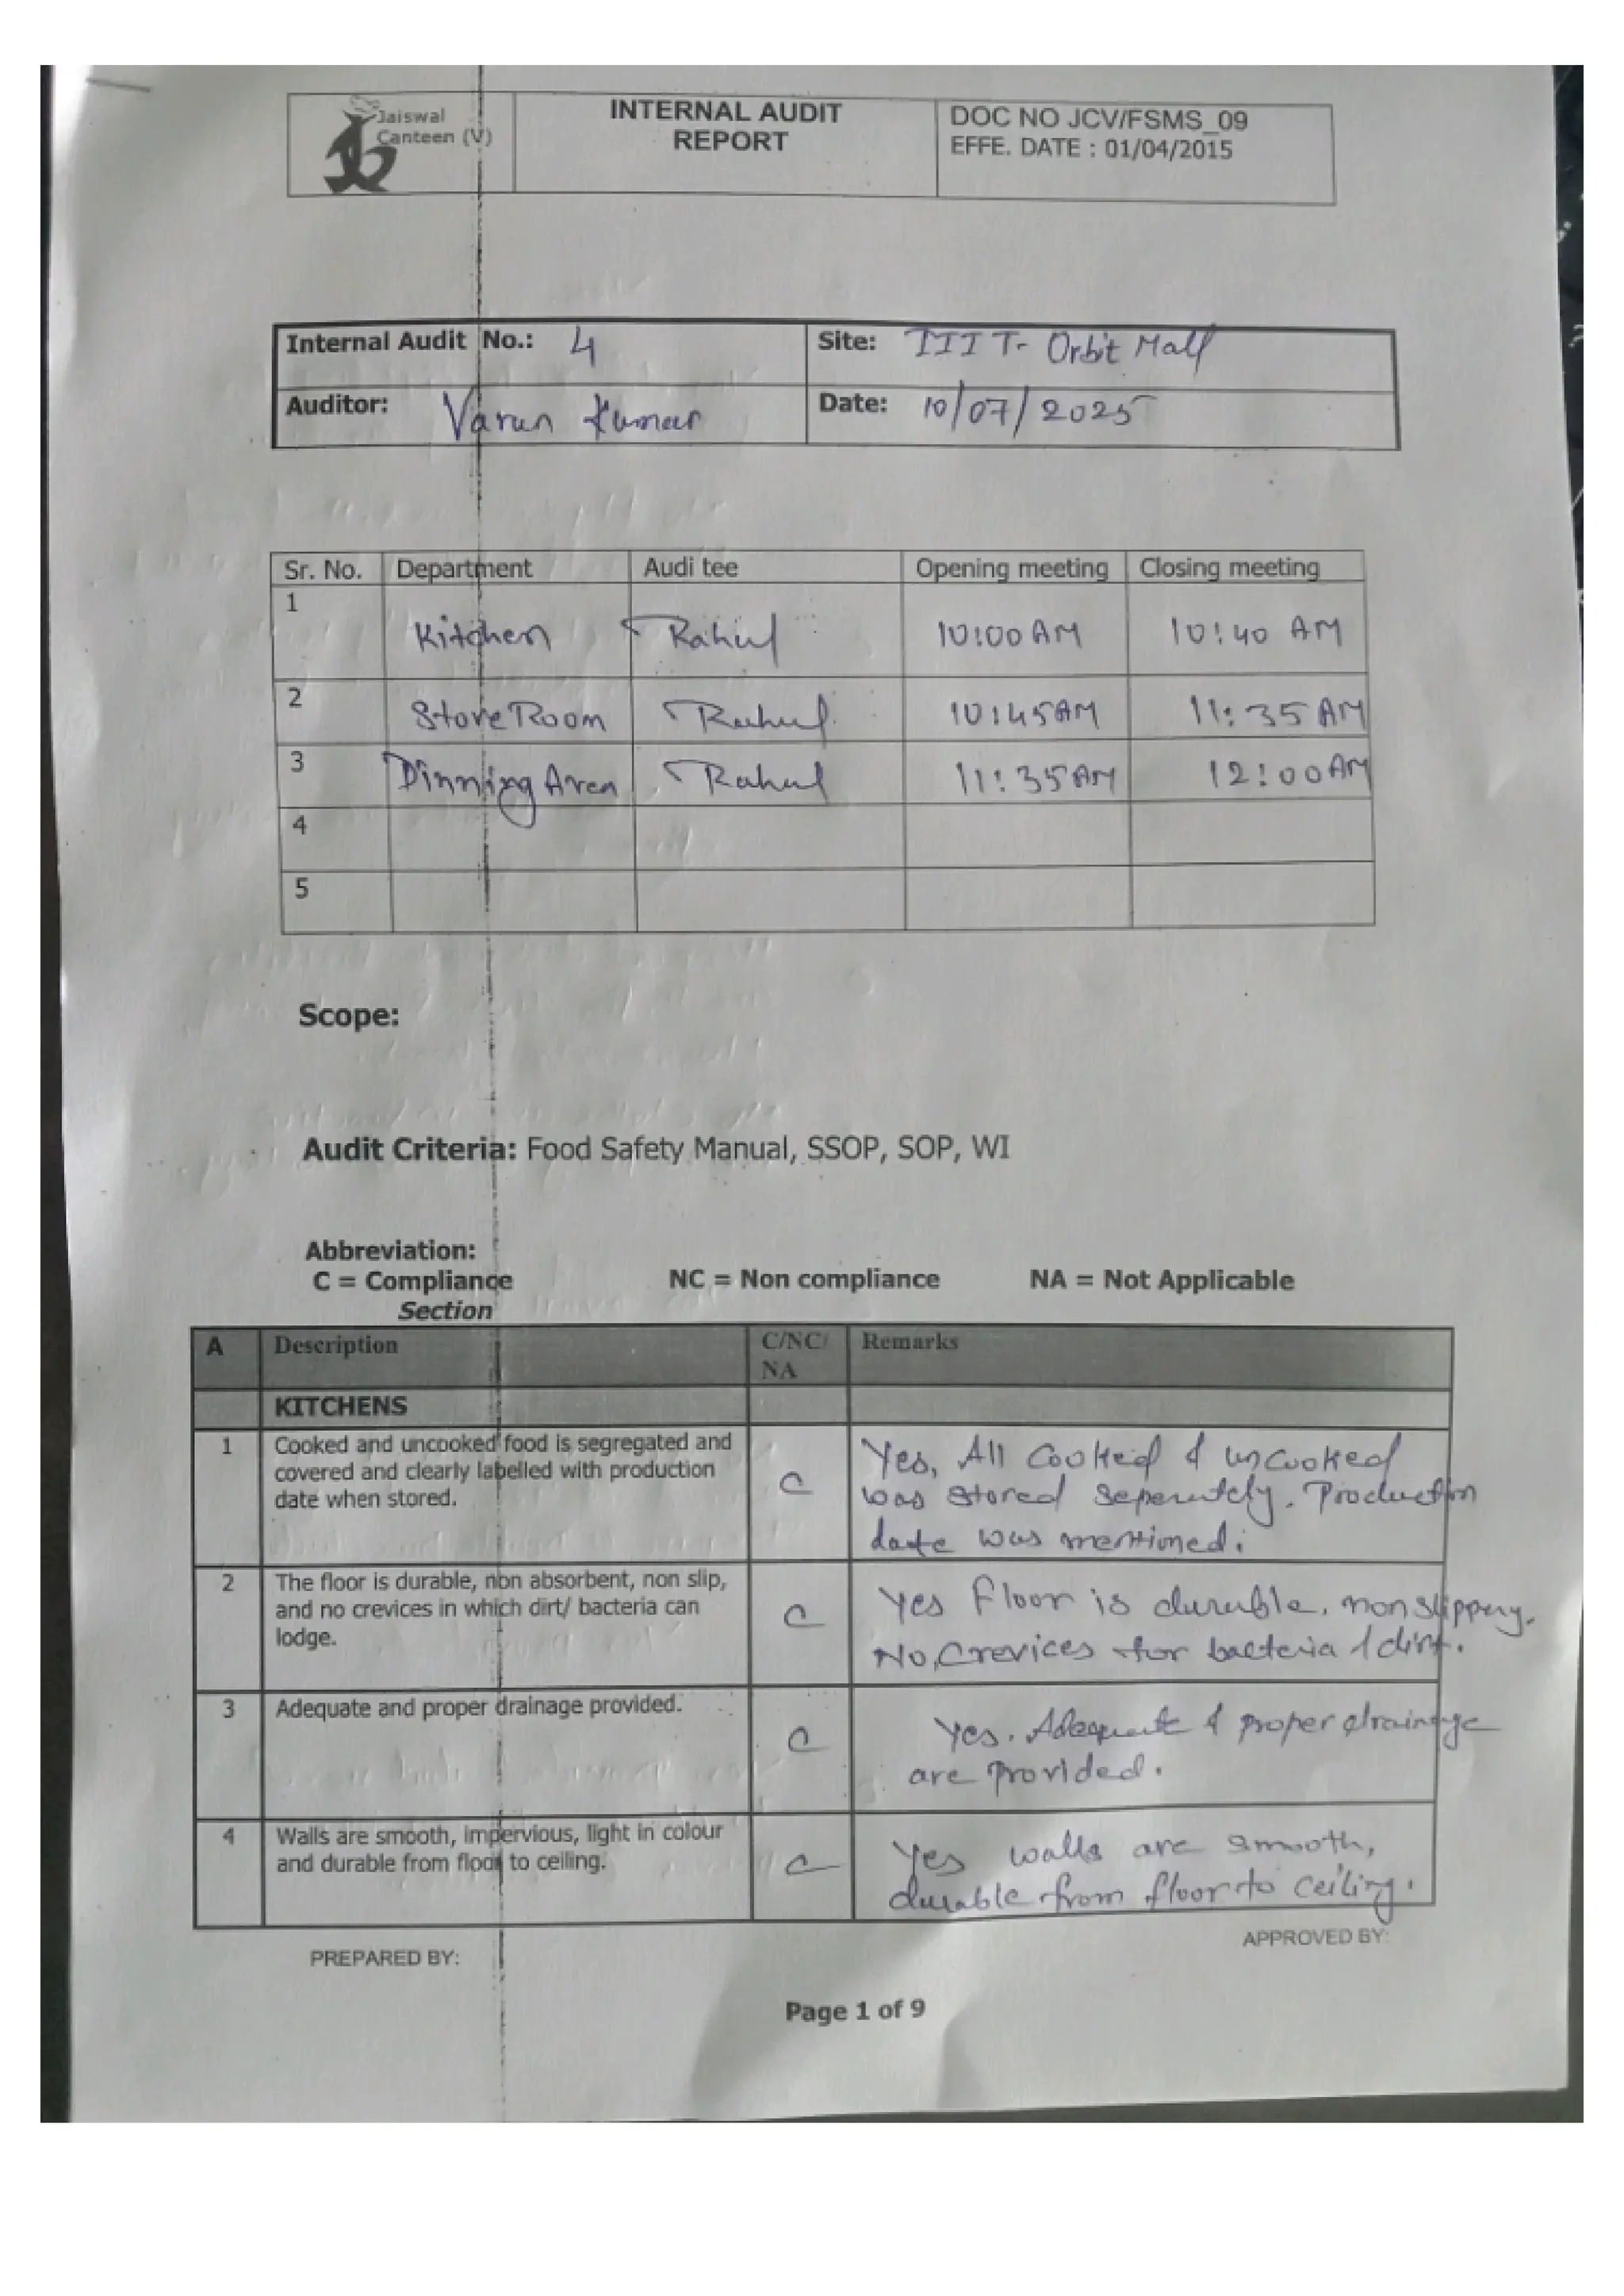 Jaiswal
Canteen (V)
INTERNAL AUDIT
REPORT
DOC NO JCV/FSMS_09
EFFE. DATE : 01/04/2015
Internal Audit No.: 4
Site: IIIT- Orbit Mall
Auditor: Varun Kumar
Date: 10/07/2025
Sr. No. Department Audi tee Opening meeting Closing meeting
1 Kitchen Rahul 10:00 AM 10:40 AM
2 Store Room Rahul 10:45AM 11:35 AM
3 Dinning Area Rahul 11:35AM 12:00AM
4
5
Scope:
Audit Criteria: Food Safety Manual, SSOP, SOP, WI
Abbreviation:
C = Compliance NC = Non compliance NA = Not Applicable
Section
A Description C/NC/ Remarks
NA
KITCHENS
1 Cooked and uncooked food is segregated and
covered and clearly labelled with production
date when stored.
C
Yes, All Cooked & uncooked
was stored seperately. Production
date was mentioned.
2 The floor is durable, non absorbent, non slip,
and no crevices in which dirt/ bacteria can
lodge.
C
Yes Floor is durable, non slippery.
No, Crevices for bacteria / dirt.
3 Adequate and proper drainage provided.
C
Yes. Adequate & proper drainage
are provided.
4 Walls are smooth, impervious, light in colour
and durable from floor to ceiling.
C
Yes walls are smooth,
durable from floor to ceiling.
PREPARED BY:
APPROVED BY:
Page 1 of 9